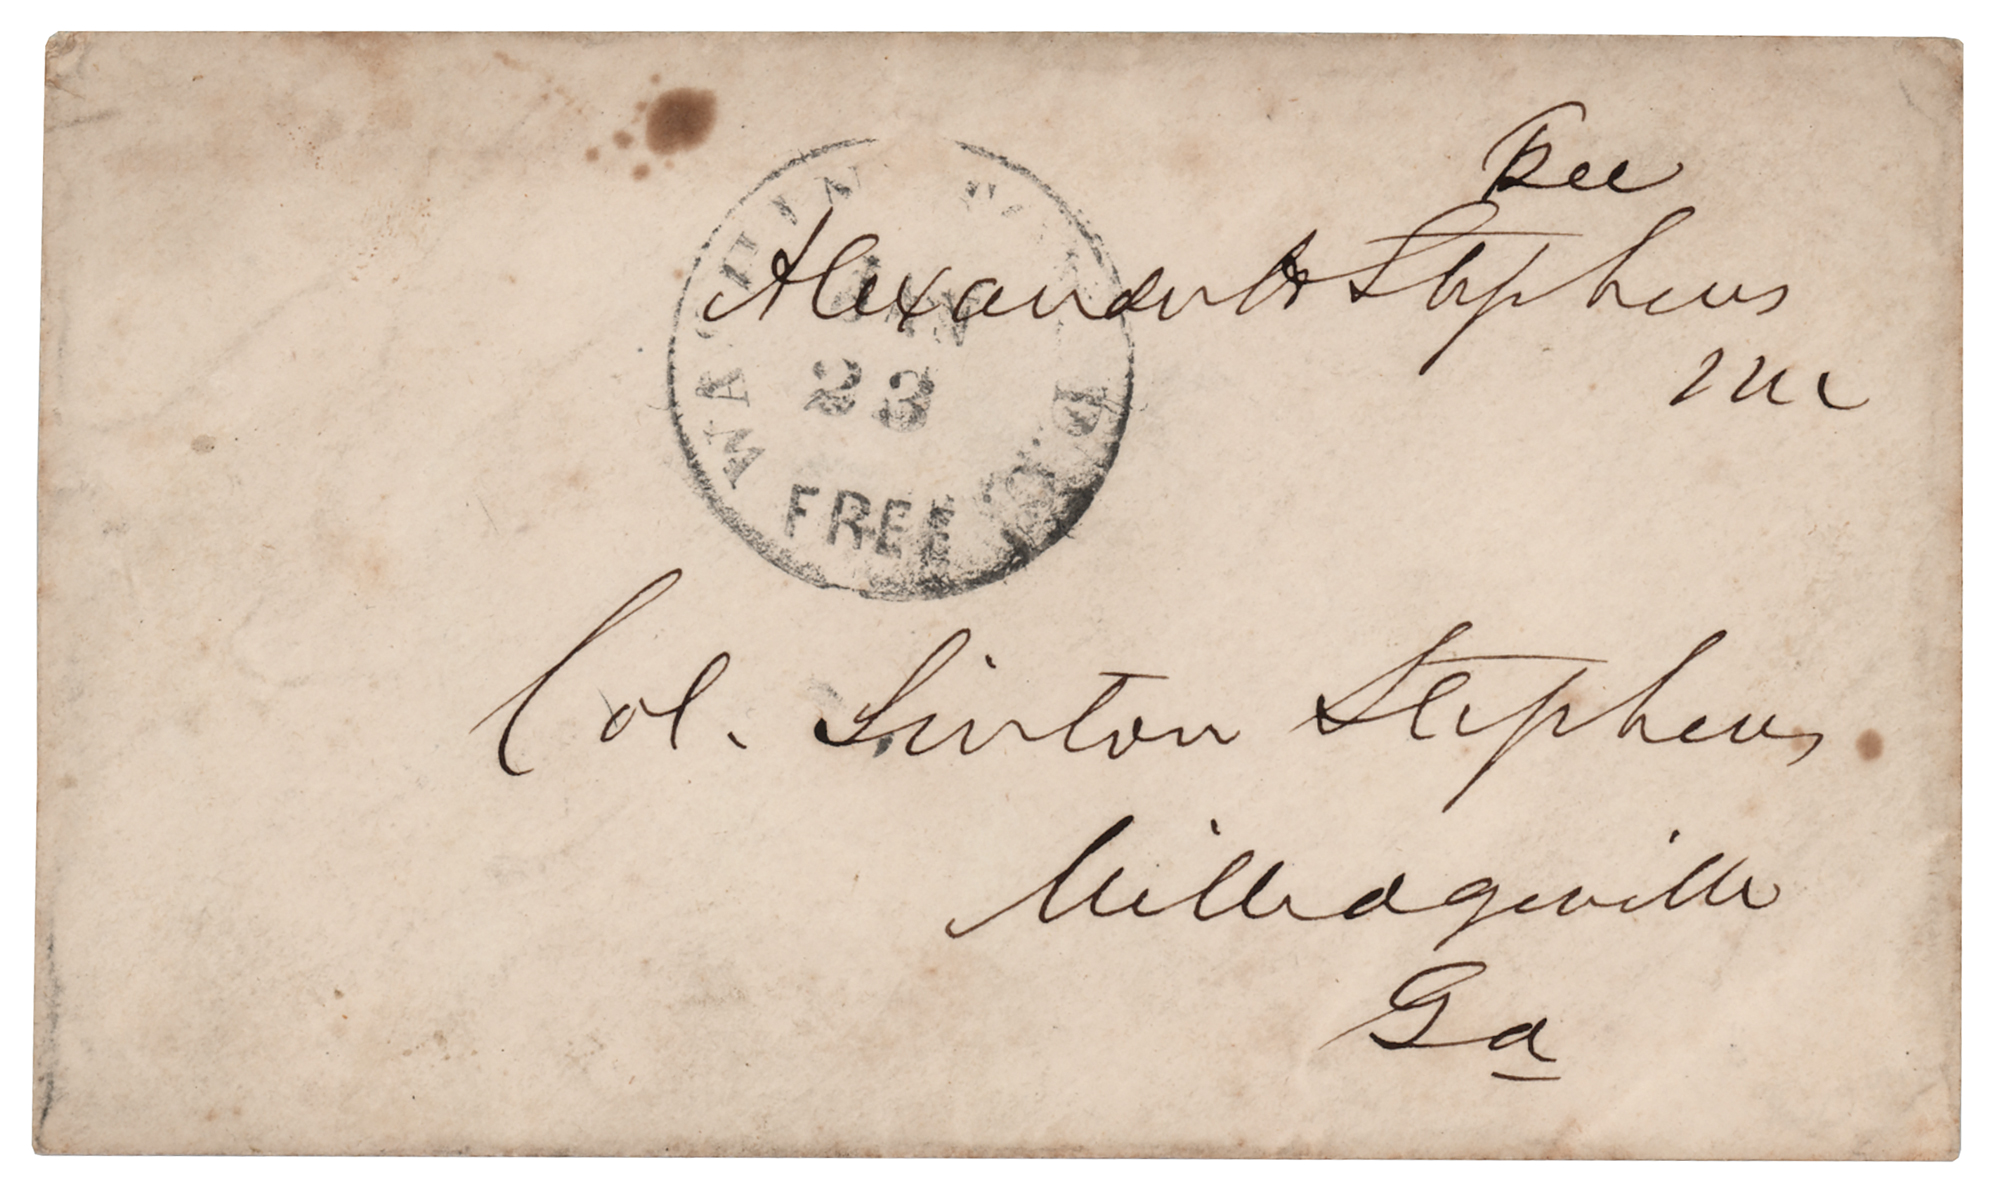 Free
Alexander H Stephens
MC
WASHIN TON D.C.
JAN
23
FREE
Col. Linton Stephens
Milledgeville
Ga